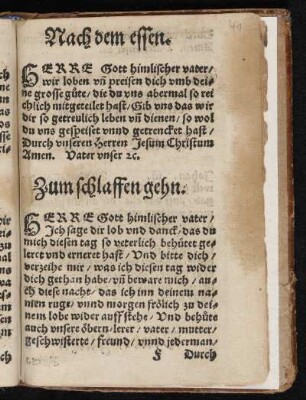 Nach dem essen.
HERRE Gott himlischer vater/
wir loben vñ preisen dich vmb dei-
ne grosse güte/ die du vns abermal so rei
chlich mitgeteilet hast/ Gib vns das wir
dir so getreulich leben vñ dienen/ so wol
du vns gespeiset vnnd getrencket hast/
Durch vnseren Herren Jesum Christum
Amen. Vater vnser ꝛc.
Zum schlaffen gehn.
HERRE Gott himlischer vater/
Ich sage dir lob vnd danck/ das du
mich diesen tag so veterlich behütet ge-
leret vnd erneret hast/ Vnd bitte dich/
verzeihe mir/ was ich diesen tag wider
dich gethan habe/ vñ beware mich/ au-
ch diese nache/ das ich inn deinem na-
men ruge/ vnnd morgen frölich zu dei-
nem lobe wider auff stehe/ Vnd behüte
auch vnsere öbern/ lerer/ vater/ mutter/
geschwisterte/ freund/ vnnd jederman/
F Durch